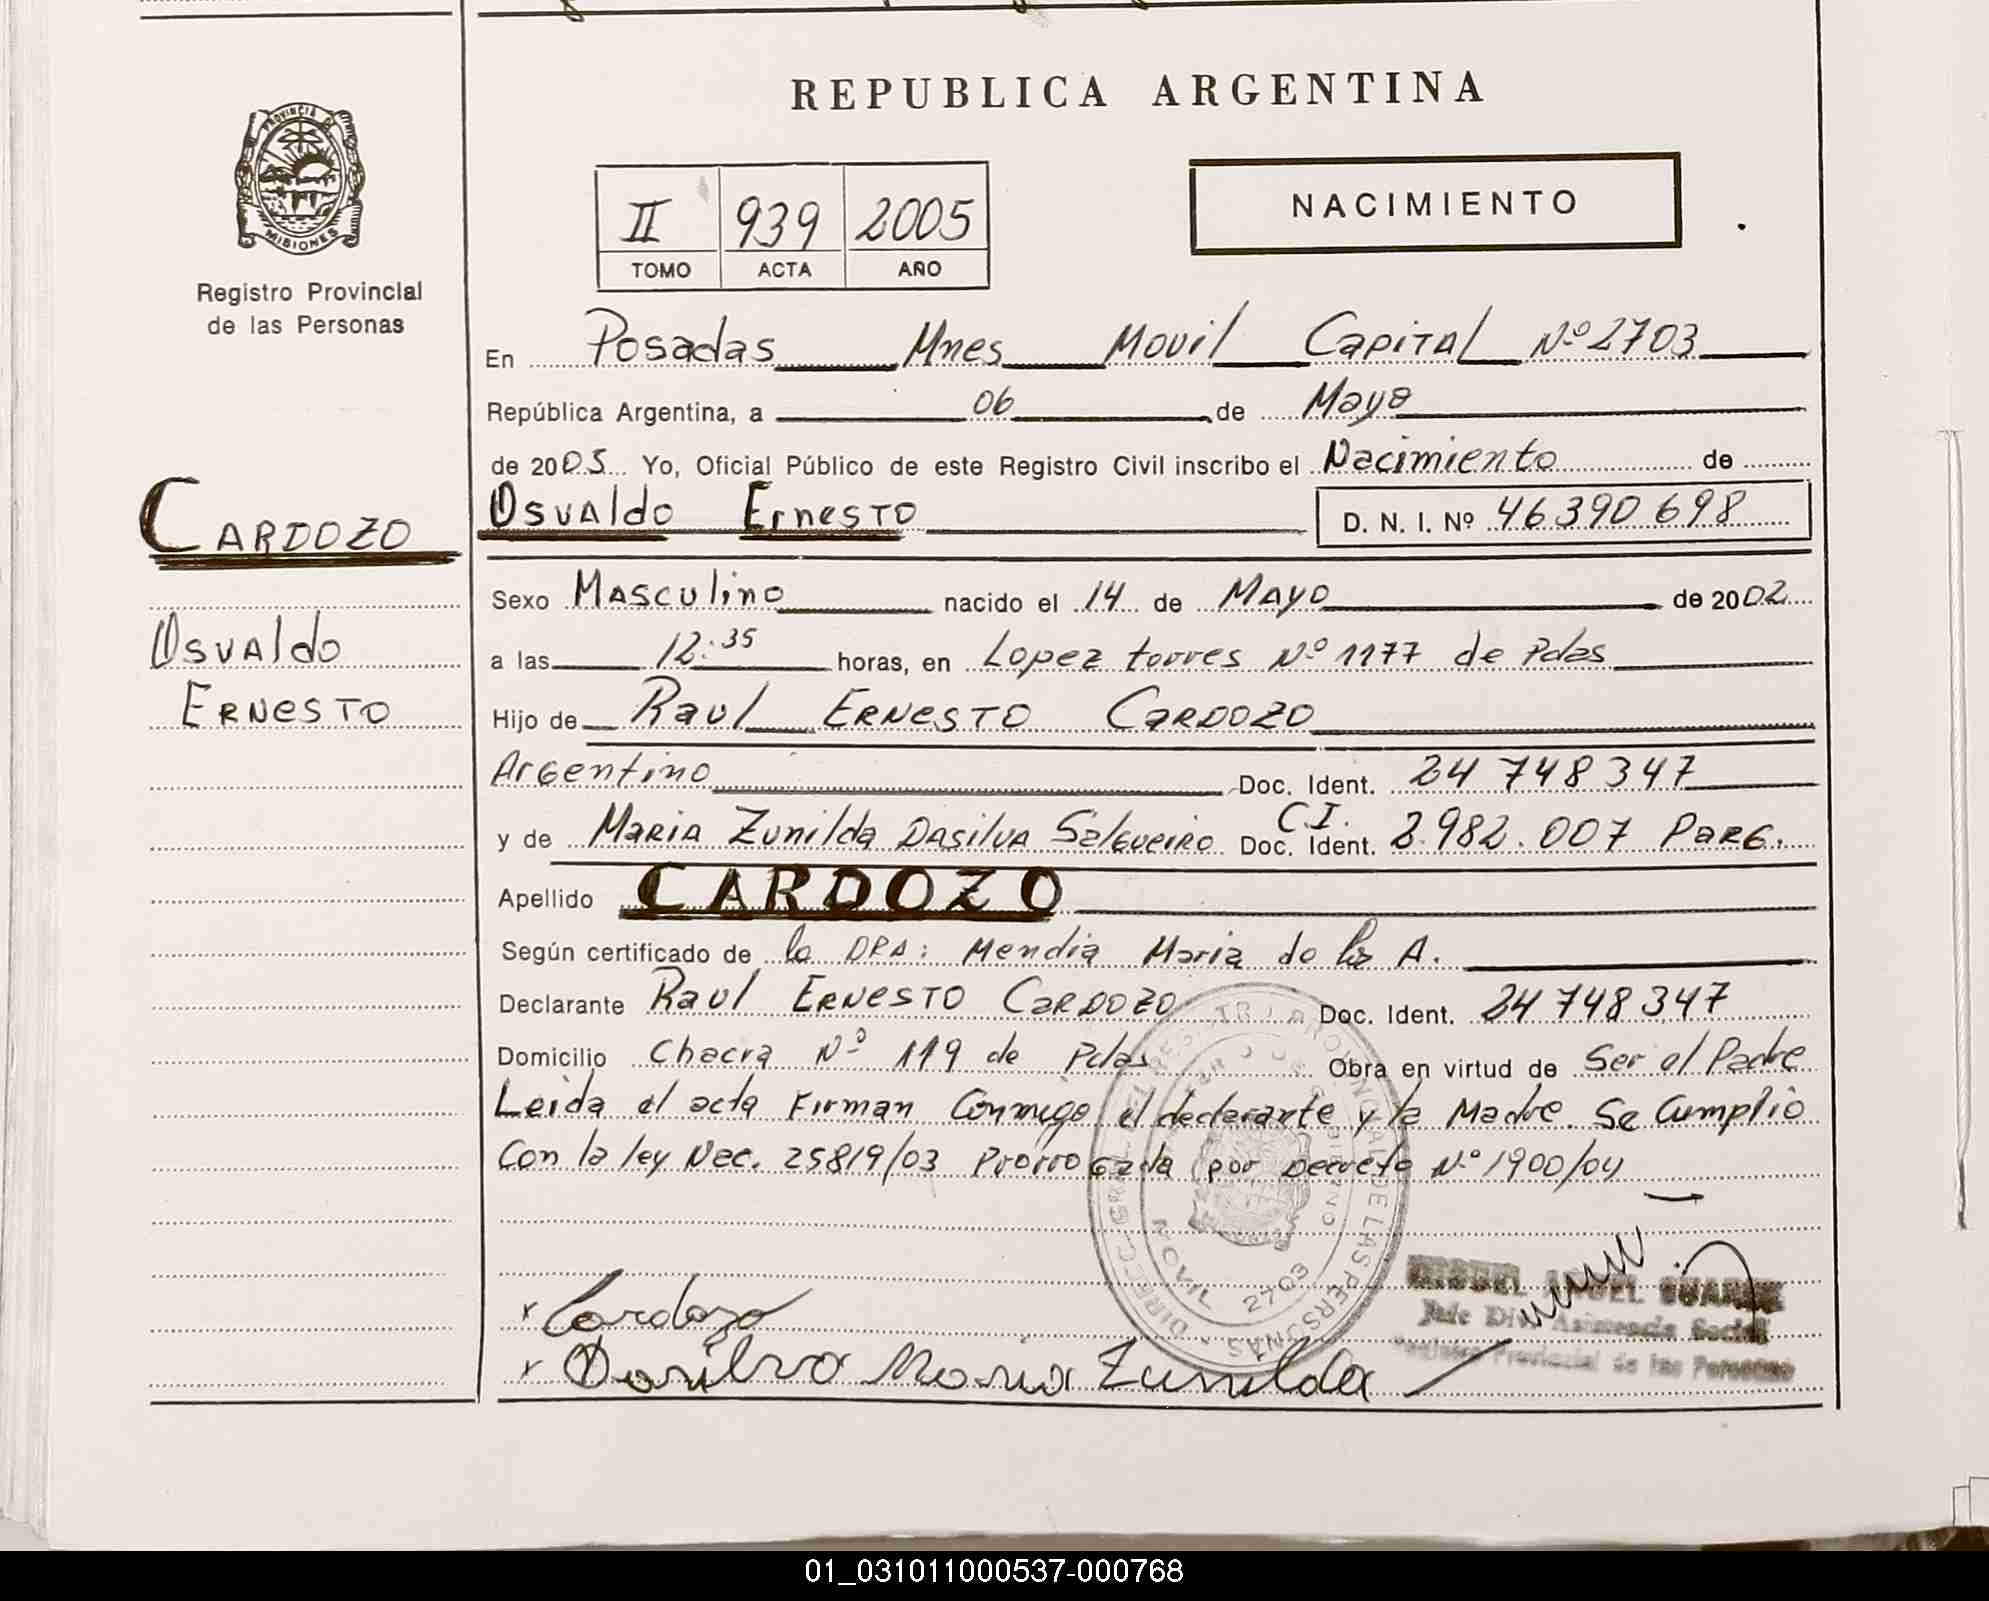 REPUBLICA ARGENTINA
PROVINCIA DE
MISIONES
Registro Provincial
de las Personas
II 939 2005
TOMO ACTA AÑO
NACIMIENTO
En Posadas Mnes Movil Capital Nº 2703
República Argentina, a 06 de Mayo
de 2005 Yo, Oficial Público de este Registro Civil inscribo el Nacimiento de
CARDOZO
Osvaldo Ernesto D. N. I. Nº 46390698
Sexo Masculino nacido el 14 de Mayo de 2002
Osvaldo
a las 12:35 horas, en Lopez torres Nº 1177 de Pdas
Ernesto
Hijo de Raul Ernesto Cardozo
Argentino Doc. Ident. 24748347
y de Maria Zunilda Dasilva Salgueiro C.I. Doc. Ident. 3.982.007 Parg.
Apellido CARDOZO
Según certificado de la DRA: Mendia Maria de los A.
Declarante Raul Ernesto Cardozo Doc. Ident. 24748347
Domicilio Chacra Nº 119 de Pdas Obra en virtud de Ser el Padre
Leida el acta Firman Conmigo el declarante y la Madre. Se Cumplio
Con la ley Nac. 25819/03 Prorrogada por Decreto Nº 1900/04
MOVIL 2703
Cardozo
MIGUEL ANGEL SUAREZ
Jefe Div. Asistencia Social
Registro Provincial de las Personas
Dasilva Maria Zunilda
01_031011000537-000768